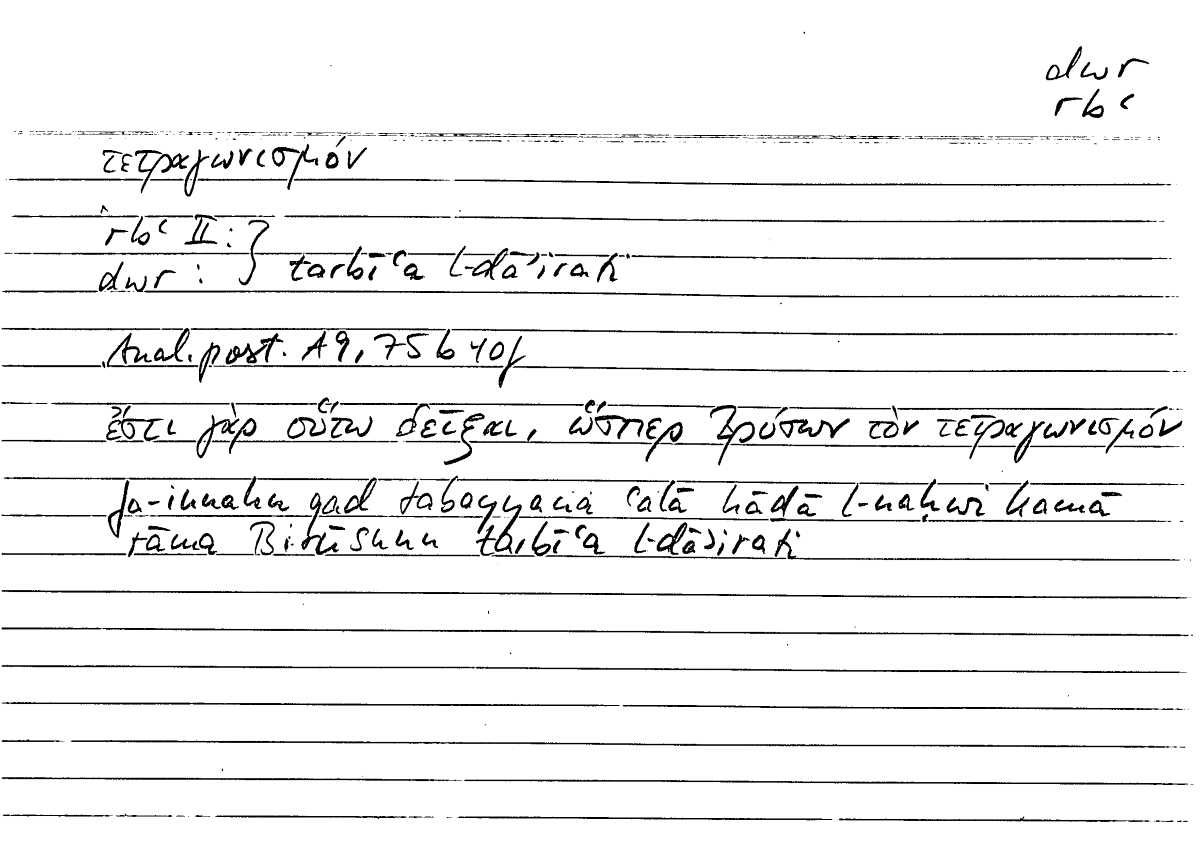 dwr
rbʿ
τετραγωνισμόν
rbʿ II : }
dwr : } tarbīʿa l-dāʾirati
Anal. post. A9, 75 b 40f
ἔστι γὰρ οὕτω δεῖξαι, ὥσπερ Βρύσων τὸν τετραγωνισμόν
fa-innahu qad tabayyana ʿalā hāḏā l-naḥwi kamā
rāma Birūsunu tarbīʿa l-dāʾirati